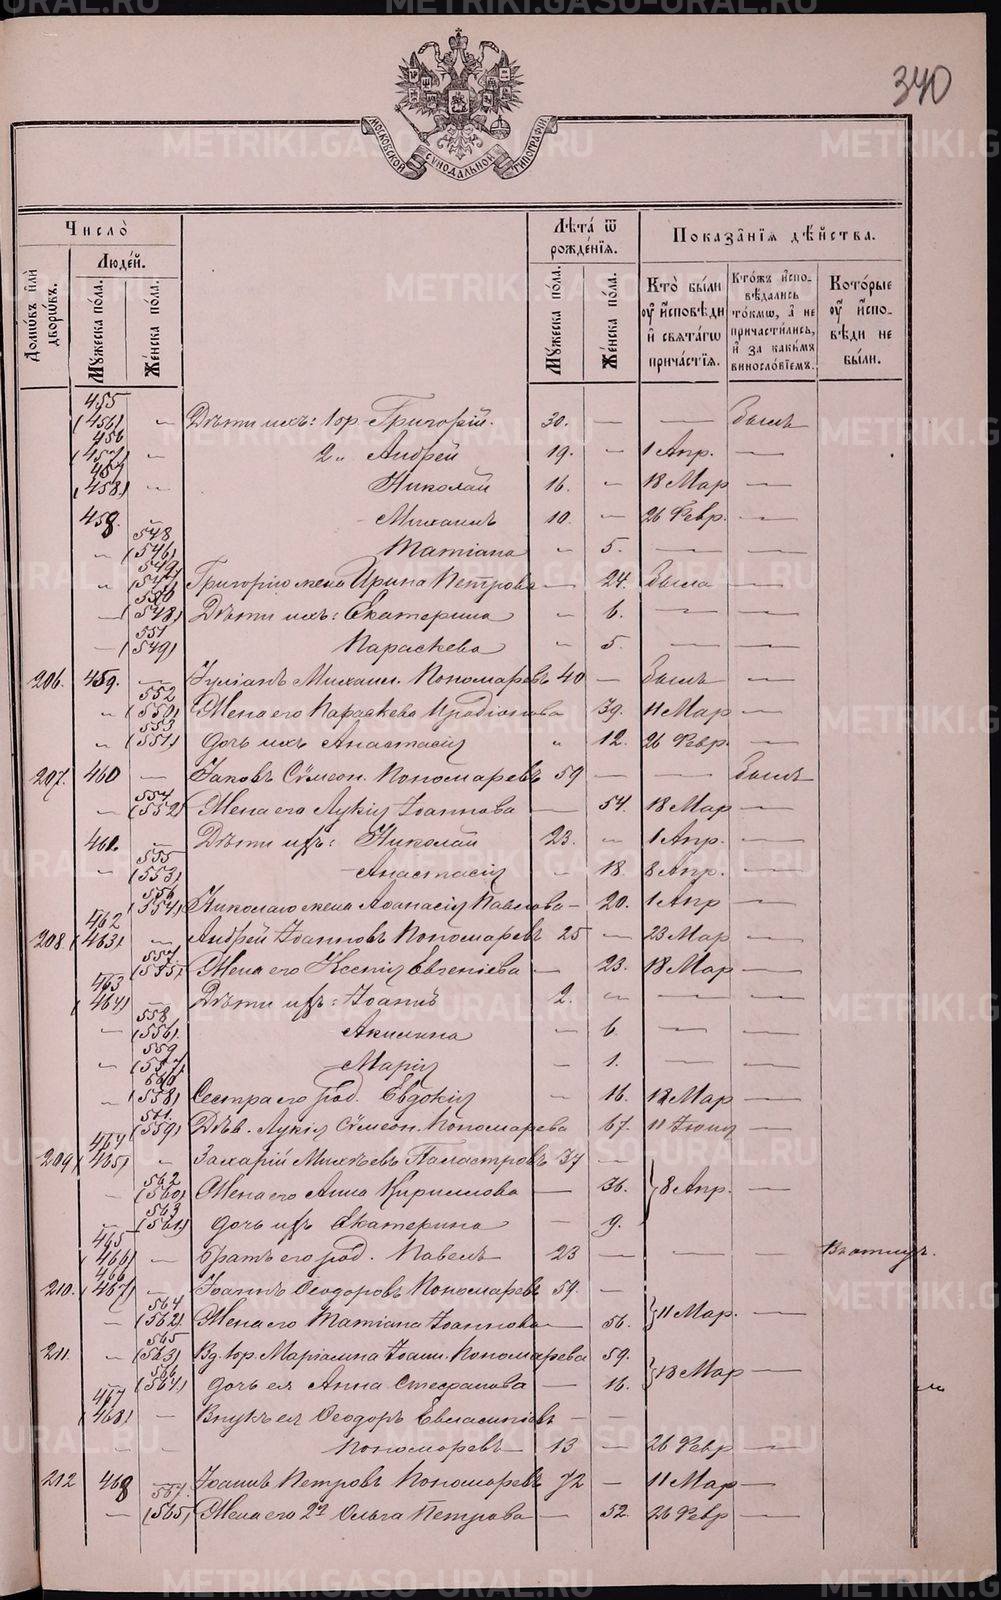 340
МОСКОВСКОЙ СѴНОДАЛЬНОЙ ТИПОГРАФІИ
Число̀
Домѡвъ и҆лѝ дворѡ́въ.
Люде́й.
Мꙋ́жеска по́ла.
Же́нска по́ла.
Лѣ́та ѿ рожде́нїѧ.
Мꙋ́жеска по́ла.
Же́нска по́ла.
Показа́нїѧ дѣ́йства.
Кто̀ бы́ли ᲂу҆ и҆сповѣ́ди и҆ свѧта́гѡ прича́стїѧ.
Кто́жъ и҆сповѣ́дались то́кмѡ, а҆ не причасти́лись, и҆ за каки́мъ винослⷪ҇вїемъ.
Кото́рые ᲂу҆ и҆сповѣ́ди не бы́ли.
455 (456) Дѣти ихъ: 1 бр. Григорій. 30. — — Былъ
456 (457) — 2" Андрей 19. — 1 Апр. —
457 (458) — Николай 16. — 18 Мар —
458. — Михаилъ 10. — 26 Февр. —
" 548 (546) Татіана " 5. — —
" 549 (547) Григорію жена Ирина Петрова — 24. Была —
— 550 (548) Дѣти ихъ: Екатерина " 6. — —
— 551 (549) Параскева " 5. — —
206. 459. — Іуліанъ Михаил. Пономаревъ 40 — Былъ —
" 552 (550) Жена его Параскева Иродіонова 39. 11 Мар —
" 553 (551) дочь ихъ Анастасія " 12. 26 Февр. —
207. 460 — Іаковъ Сѵмеон. Пономаревъ 59 — — Былъ
" 554 (552) Жена его Лукія Іоаннова — 54. 18 Мар —
461. — Дѣти ихъ: Николай 23. " 1 Апр. —
" 555 (553) Анастасія " 18. 8 Апр. —
556 (554) Николаю жена Аѳанасія Павлова — 20. 1 Апр —
208 462 (463) — Андрей Іоанновъ Пономаревъ 25 — 23 Мар —
557 (555) Жена его Ксенія Евгеніева — 23. 18 Мар —
463 (464) — Дѣти ихъ: Іоаннъ 2. " — —
— 558 (556) Акилина — 6. — —
" 559 (557) Марія — 1. — —
" 560 (558) Сестра его род. Евдокія " 16. 18 Мар —
561. (559) Дѣв. Лукія Сѵмеон. Пономарева " 67. 11 Іюня —
209 464 (465) " Захарій Михѣевъ Паластровъ 37 —
— 562 (560) Жена его Анна Кириллова — 36. 8 Апр. —
— 563 (561) дочь ихъ Екатерина — 9.
465 (466) — Братъ его род. Павелъ 23 — — — Въ отлуч.
210. 466 (467) — Іоаннъ Ѳеодоровъ Пономаревъ 59. —
— 564 (562) Жена его Татіана Іоаннова — 56. 11 Мар. —
211. " 565 (563) Вд. 1 бр. Маріамна Іоан. Пономарева 59.
— 566 (564) дочь ея Анна Стефанова — 16. 18 Мар —
467 (468) — Внукъ ея Ѳеодоръ Евлампіевъ — —
— — Пономаревъ 13 — 26 Февр —
212 468 — Іоаннъ Петровъ Пономаревъ 72 — 11 Мар —
" 567. (565) Жена его 2я Ольга Петрова — 52. 26 Февр —
METRIKI.GASO-URAL.RU